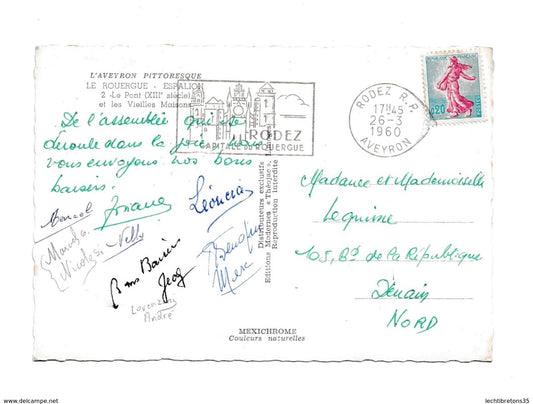 L'AVEYRON PITTORESQUE
LE ROUERGUE - ESPALION
2 - Le Pont (XIIIe siècle)
et les Vieilles Maisons
RODEZ
CAPITALE DU ROUERGUE
RODEZ R.P.
17H45
26-3
1960
AVEYRON
0,20
De l'assemblée qui se
déroule dans la joie, nous
vous envoyons nos bons
baisers.
Marcel
Josiane
Léoncia
Nelly
Nicolas
Bons Baisers
Jeog
Lorenzo
André
Marc
Editions Modernes « Théojac »
Distributeurs exclusifs
Reproduction interdite
Madame et Mademoiselle
Lequime
105, Bd de la République
Denain
NORD
MEXICHROME
Couleurs naturelles
lechtibretons35
www.delcampe.net